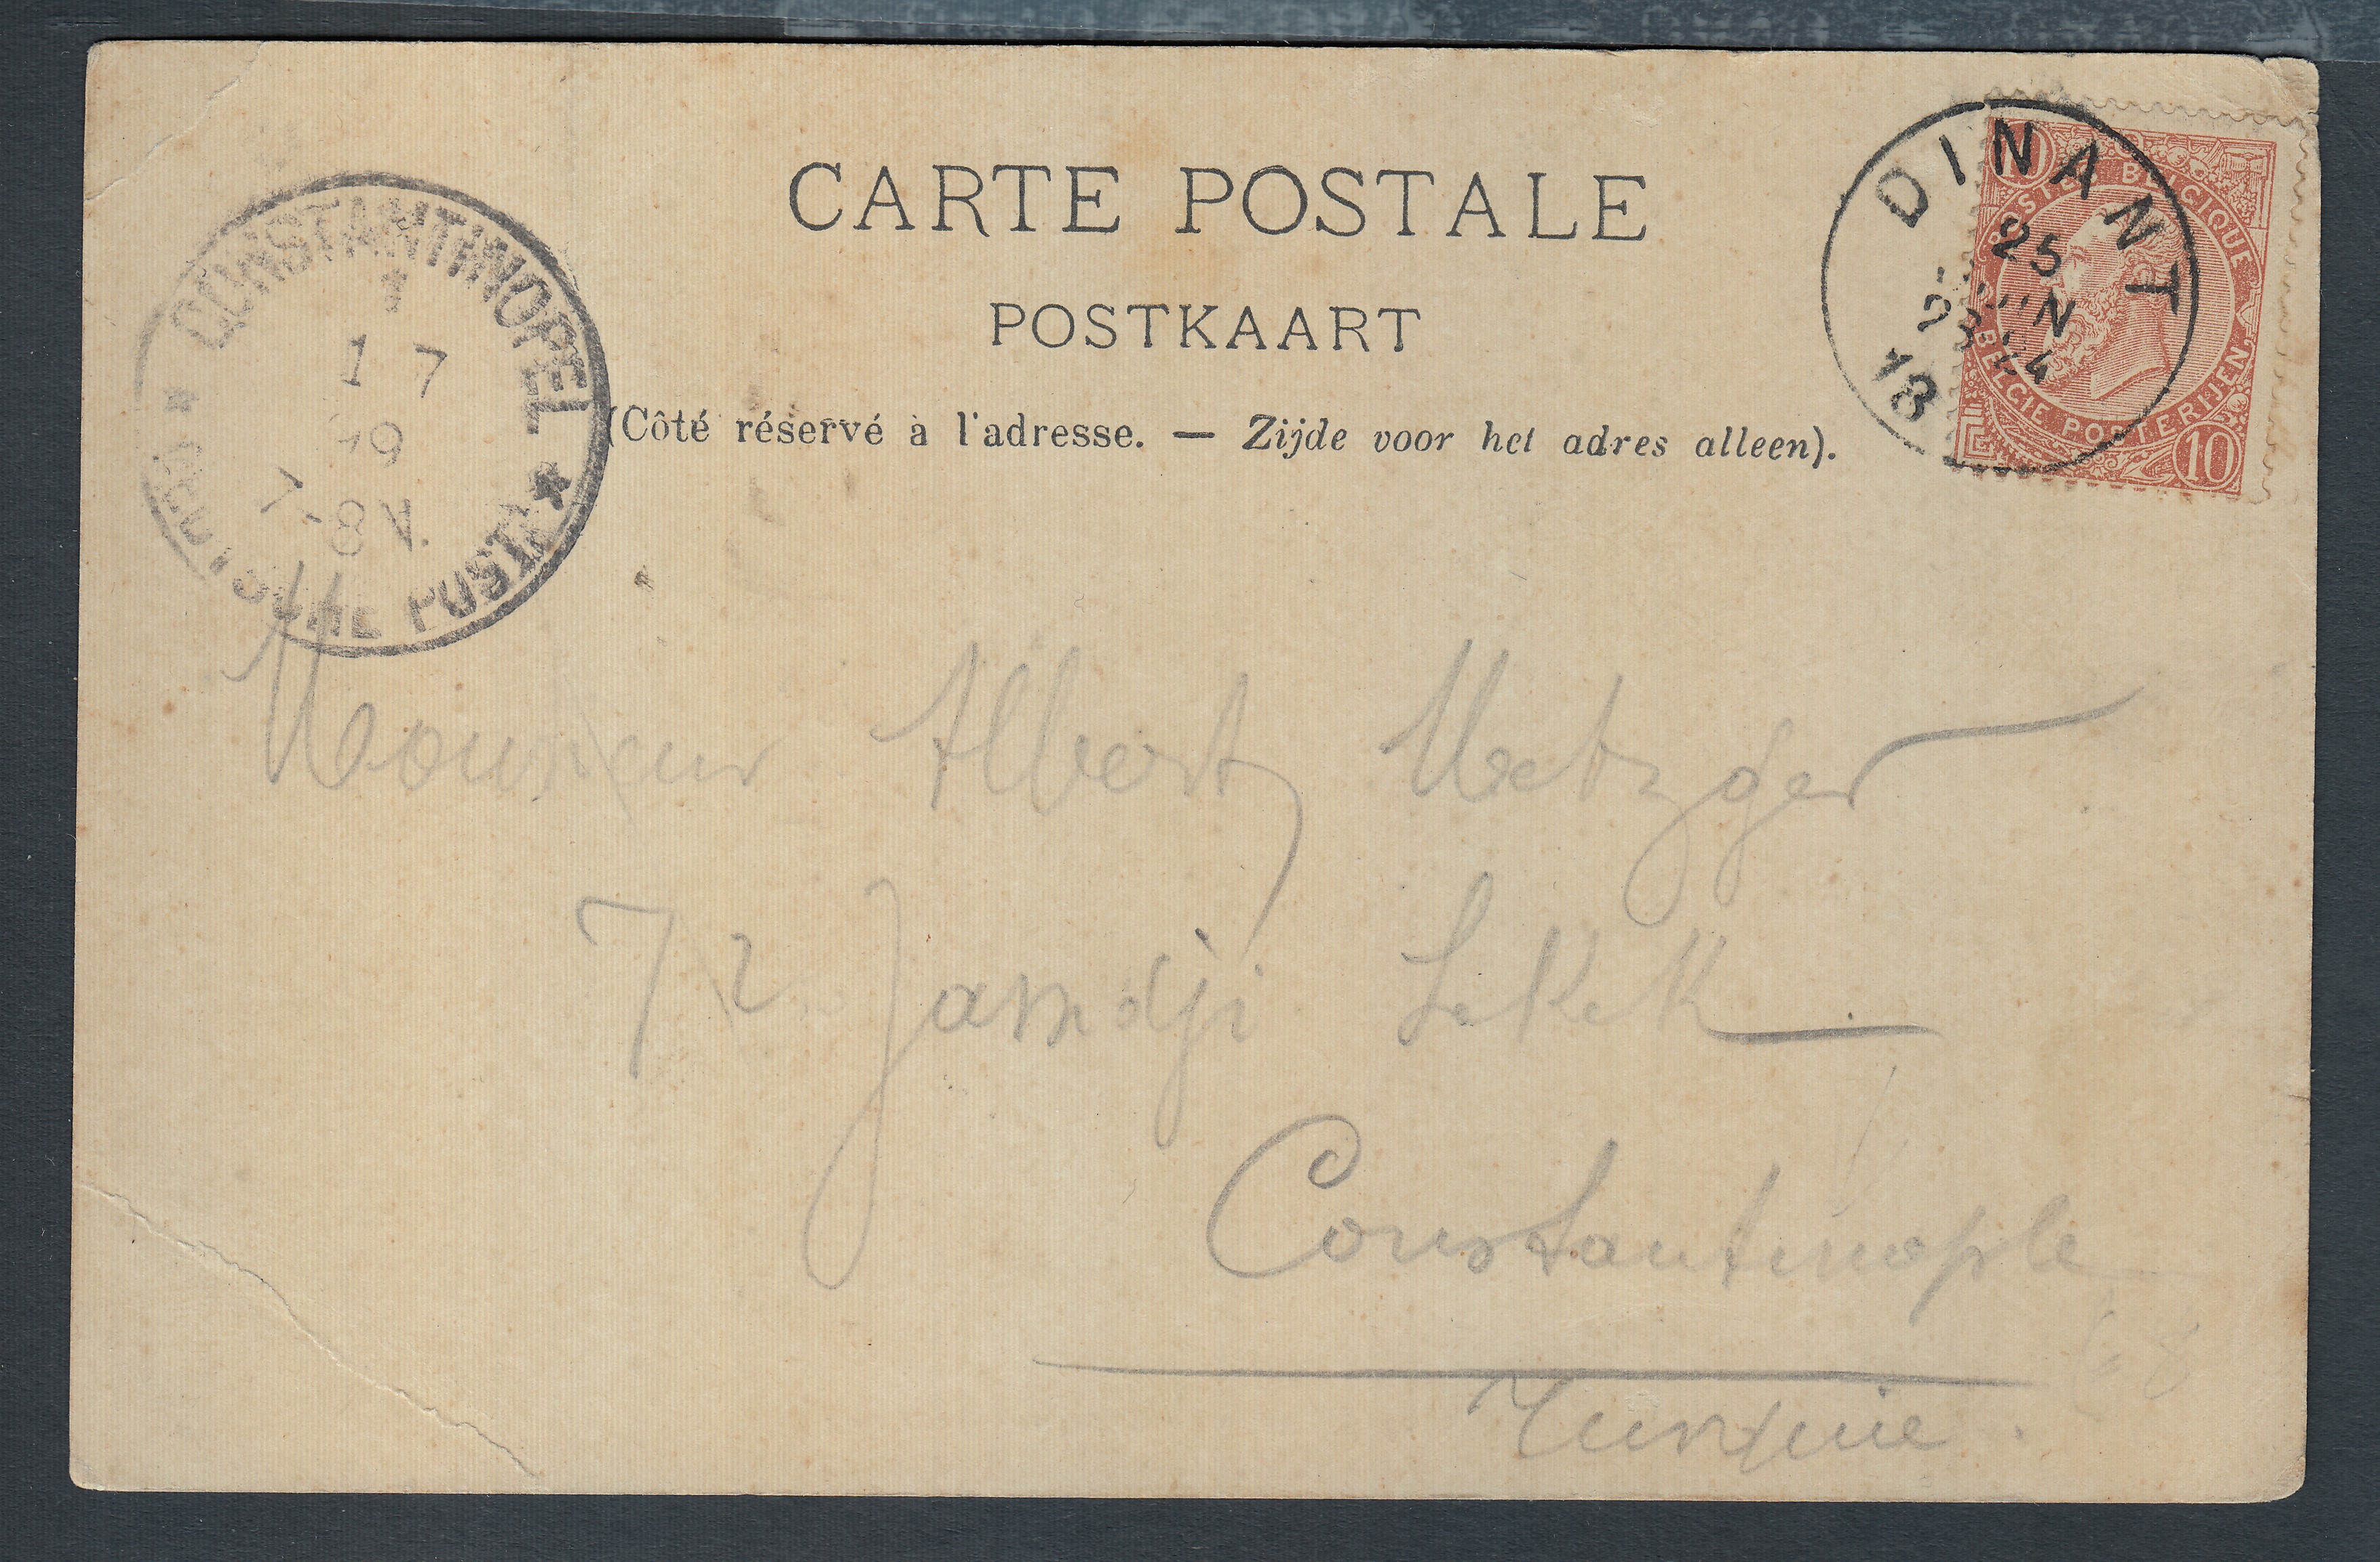 CARTE POSTALE
POSTKAART
(Côté réservé à l'adresse. — Zijde voor het adres alleen).
CONSTANTINOPEL
1
1 7
99
7-8 V.
* DEUTSCHE POST *
DINANT
25
JUIN
18
10
POSTES BELGIQUE
BELGIE POSTERIJEN
10
Monsieur Albert Metzger
72 Jamdji Sokak
Constantinople
Turquie.